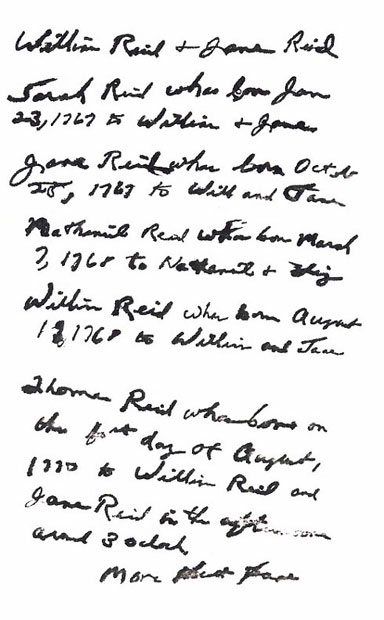 William Reid + Jane Reid
Sarah Reid whas born Jan
23, 1767 to William + James
Jane Reid whas born Octob
25, 1767 to Will and Jane
Nathaniel Reid whas born March
7, 1768 to Nathaniel +
William Reid whas born August
1768 to William and Jane
Thomas Reid whas born on
the first day of August,
1770 to William Reid and
Jane Reid in the afternoon
around 3 oclock
More Next Page